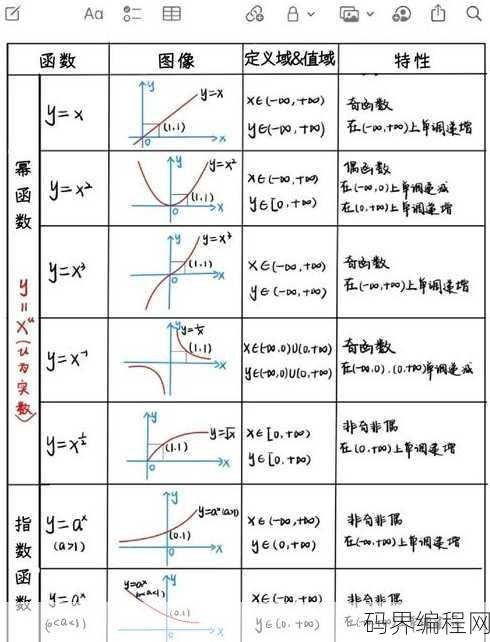 Aa
函数 图像 定义域&值域 特性
幂函数
y=x^u(u为实数)
y=x
y
y=x
(1,1)
0
x
x∈(-∞,+∞)
y∈(-∞,+∞)
奇函数
在(-∞,+∞)上单调递增
y=x²
y
y=x²
(1,1)
0
x
x∈(-∞,+∞)
y∈[0,+∞)
偶函数
在(-∞,0)上单调递减
在(0,+∞)上单调递增
y=x³
y
y=x³
(1,1)
0
x
x∈(-∞,+∞)
y∈(-∞,+∞)
奇函数
在(-∞,+∞)上单调递增
y=x⁻¹
y
y=1/x
(1,1)
x
x∈(-∞,0)∪(0,+∞)
y∈(-∞,0)∪(0,+∞)
奇函数
在(-∞,0),(0,+∞)单调递减
y=x^½
y
y=√x
(1,1)
0
x
x∈[0,+∞)
y∈[0,+∞)
非奇非偶
在(0,+∞)上单调递增
指数函数
y=aˣ
(a>1)
y
y=aˣ(a>1)
(0,1)
0
x
x∈(-∞,+∞)
y∈(0,+∞)
非奇非偶
在(-∞,+∞)上单调递增
y=aˣ
(0<a<1)
y=aˣ
(0<a<1)
y
(0,1)
0
x
x∈(-∞,+∞)
y∈(0,+∞)
非奇非偶
码界编程网